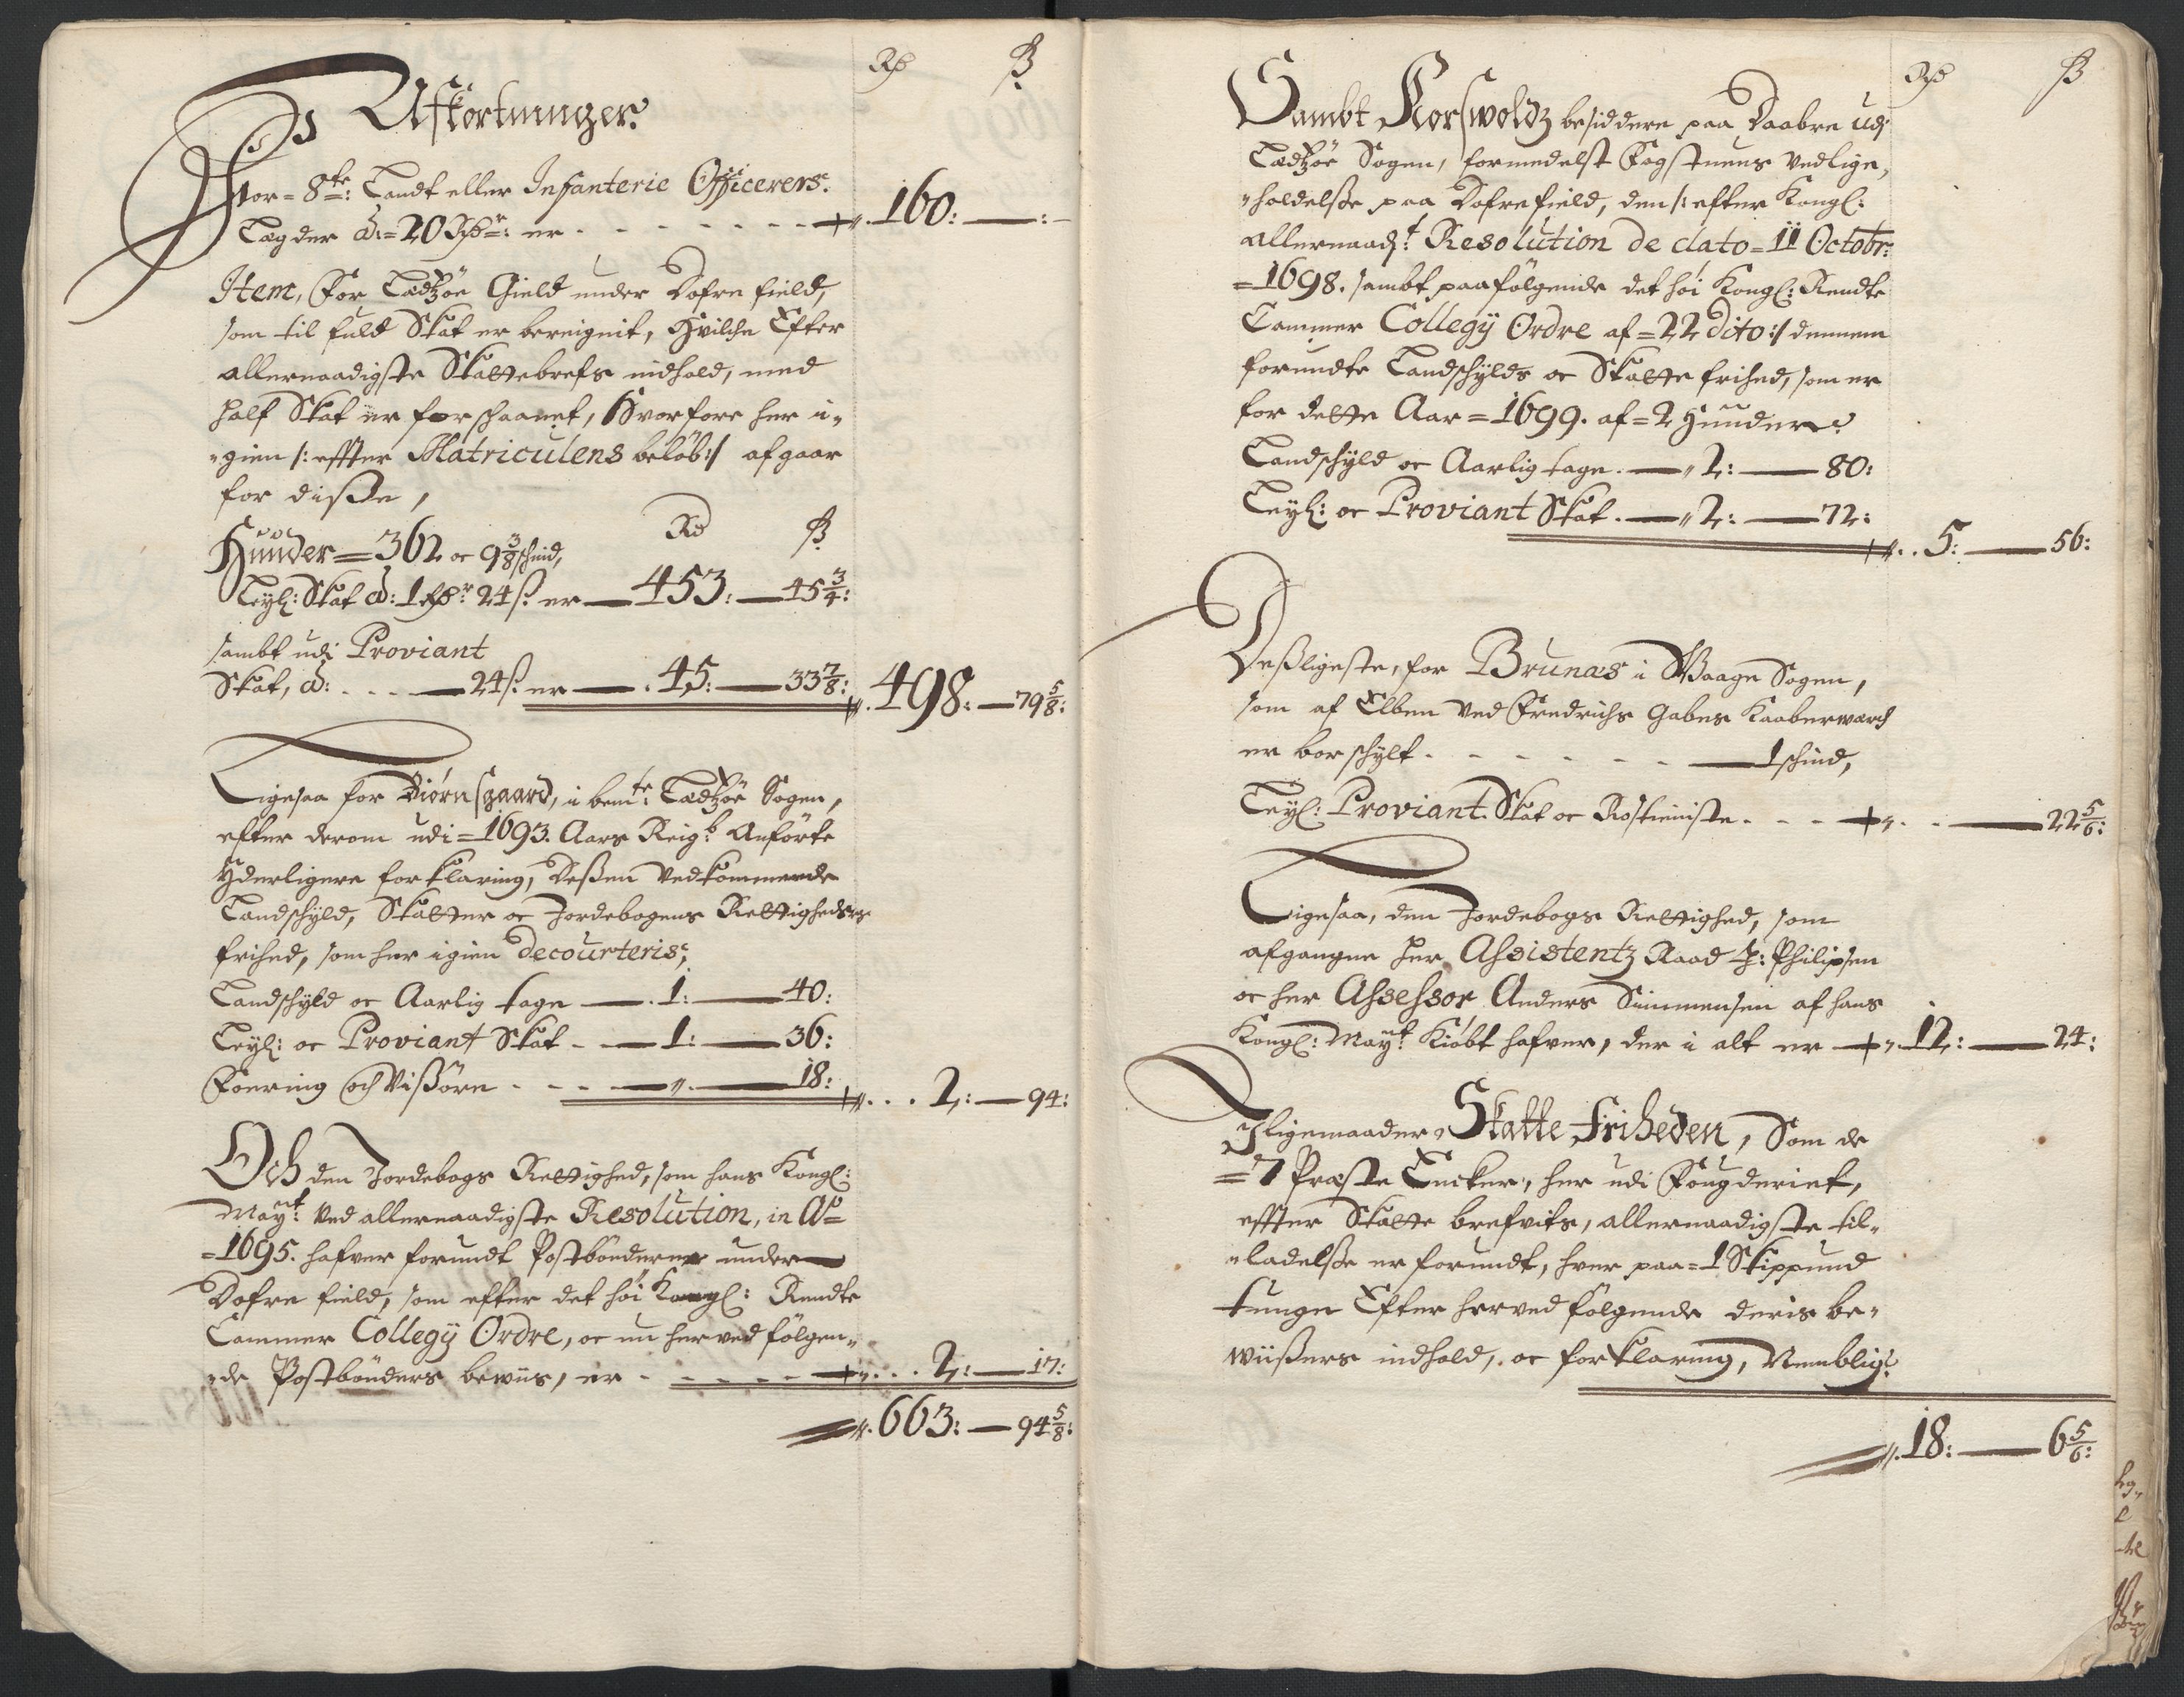 Rdr ß
Afkortninger
For 8te: Landt eller Infanterie Officerers
Læg der á: 20 Rdr: er - - - 160: — : —
Item, For Lædzöe Gield under Dofre field,
som til fuld Skat er bereignit, Hvilche Efter
allernaadigste Skattebrefs indhold, med
half Skat er forschaanet, Hvorfore her i-
gien /: effter Matriculens beløb :/ afgaar
for diße,
Rd ß
Huuder = 362 oc 9 3/8 schind,
Leyl: Skat á: 1 Rdr 24 ß er — 453: — 45 3/4:
sambt udi Proviant
Skat, á: - - - 24 ß er — 45: — 33 7/8: 498: — 79 5/8:
Ligesaa for Biørnsgaard, i bemte: Lædzöe Sogen,
efter derom udi = 1693. Aars Reigb: Anförte
Yderligere forklaring, Deßen Vedkommende
Landschyld, Skatter oc Jordebogens Rettigheders
frihed, som her igien Decourteris,
Landschyld oc Aarlig tage — 1: — 40:
Leyl: oc Proviant Skat - - 1: — 36:
Foering och Vißöre - - - — „ — 18: 2: — 94:
Och den Jordebogs Rettighed, som hans Kongl:
Mayt: Ved allernaadigste Resolution, in Ao =
= 1695. hafver forundt Postbönderne under
Dofre field, som efter det höi Kongl: Rendte
Cammer Collegÿ Ordre, oc nu herved fölgen-
de Postbönders beviis, er - - - - 2: — 17:
663: — 94 5/8:
Rdr ß
Sambt Korswoldz besiddere paa Daabre udj
Lædzöe Sogen, formedelst Fogstuens Vedlige-
holdelße paa Dofrefield, den /: efter Kongl:
allernaadt: Resolution de dato = 11 Octobr:
= 1698. sambt paafölgende det höi Kongl: Rendte
Cammer Collegÿ Ordre af = 22 dito :/ dennem
forundte Landschylds oc Skatte frihed, som er
for dette Aar = 1699. af = 2 Huuder
Landschyld oc Aarlig tage. — 2: — 80:
Leyl: oc Proviant Skat. — 2: — 72:
5: — 56:
Deßligeste, for Brunæs i Waage Sogen,
som af Elben Ved Fredrichs Gabes Kaaberwerch
er bor schylt - - - - - - — 1 schind,
Leyl: Proviant Skat oc Rostieniste - - - 22 5/6:
Ligesaa, den Jordebogs Rettighed, som
afgangne Her Assistentz Raad P: Philipsen
oc her Assessor Anders Simmensen af hans
Kongl: Mayt: Kiöbt hafver, der i alt er 12: — 24:
Iligemaader, Skatte Friheden, Som de
= 7 Præste Encker, her udi Fougderiet,
effter Skatte brefvits, allernaadigste til-
ladelße er forundt, hver paa = 1 Skippund
tunge Efter herved fölgende deris be-
wiißers indhold, oc forklaring, Nemblig
18: — 6 5/6: